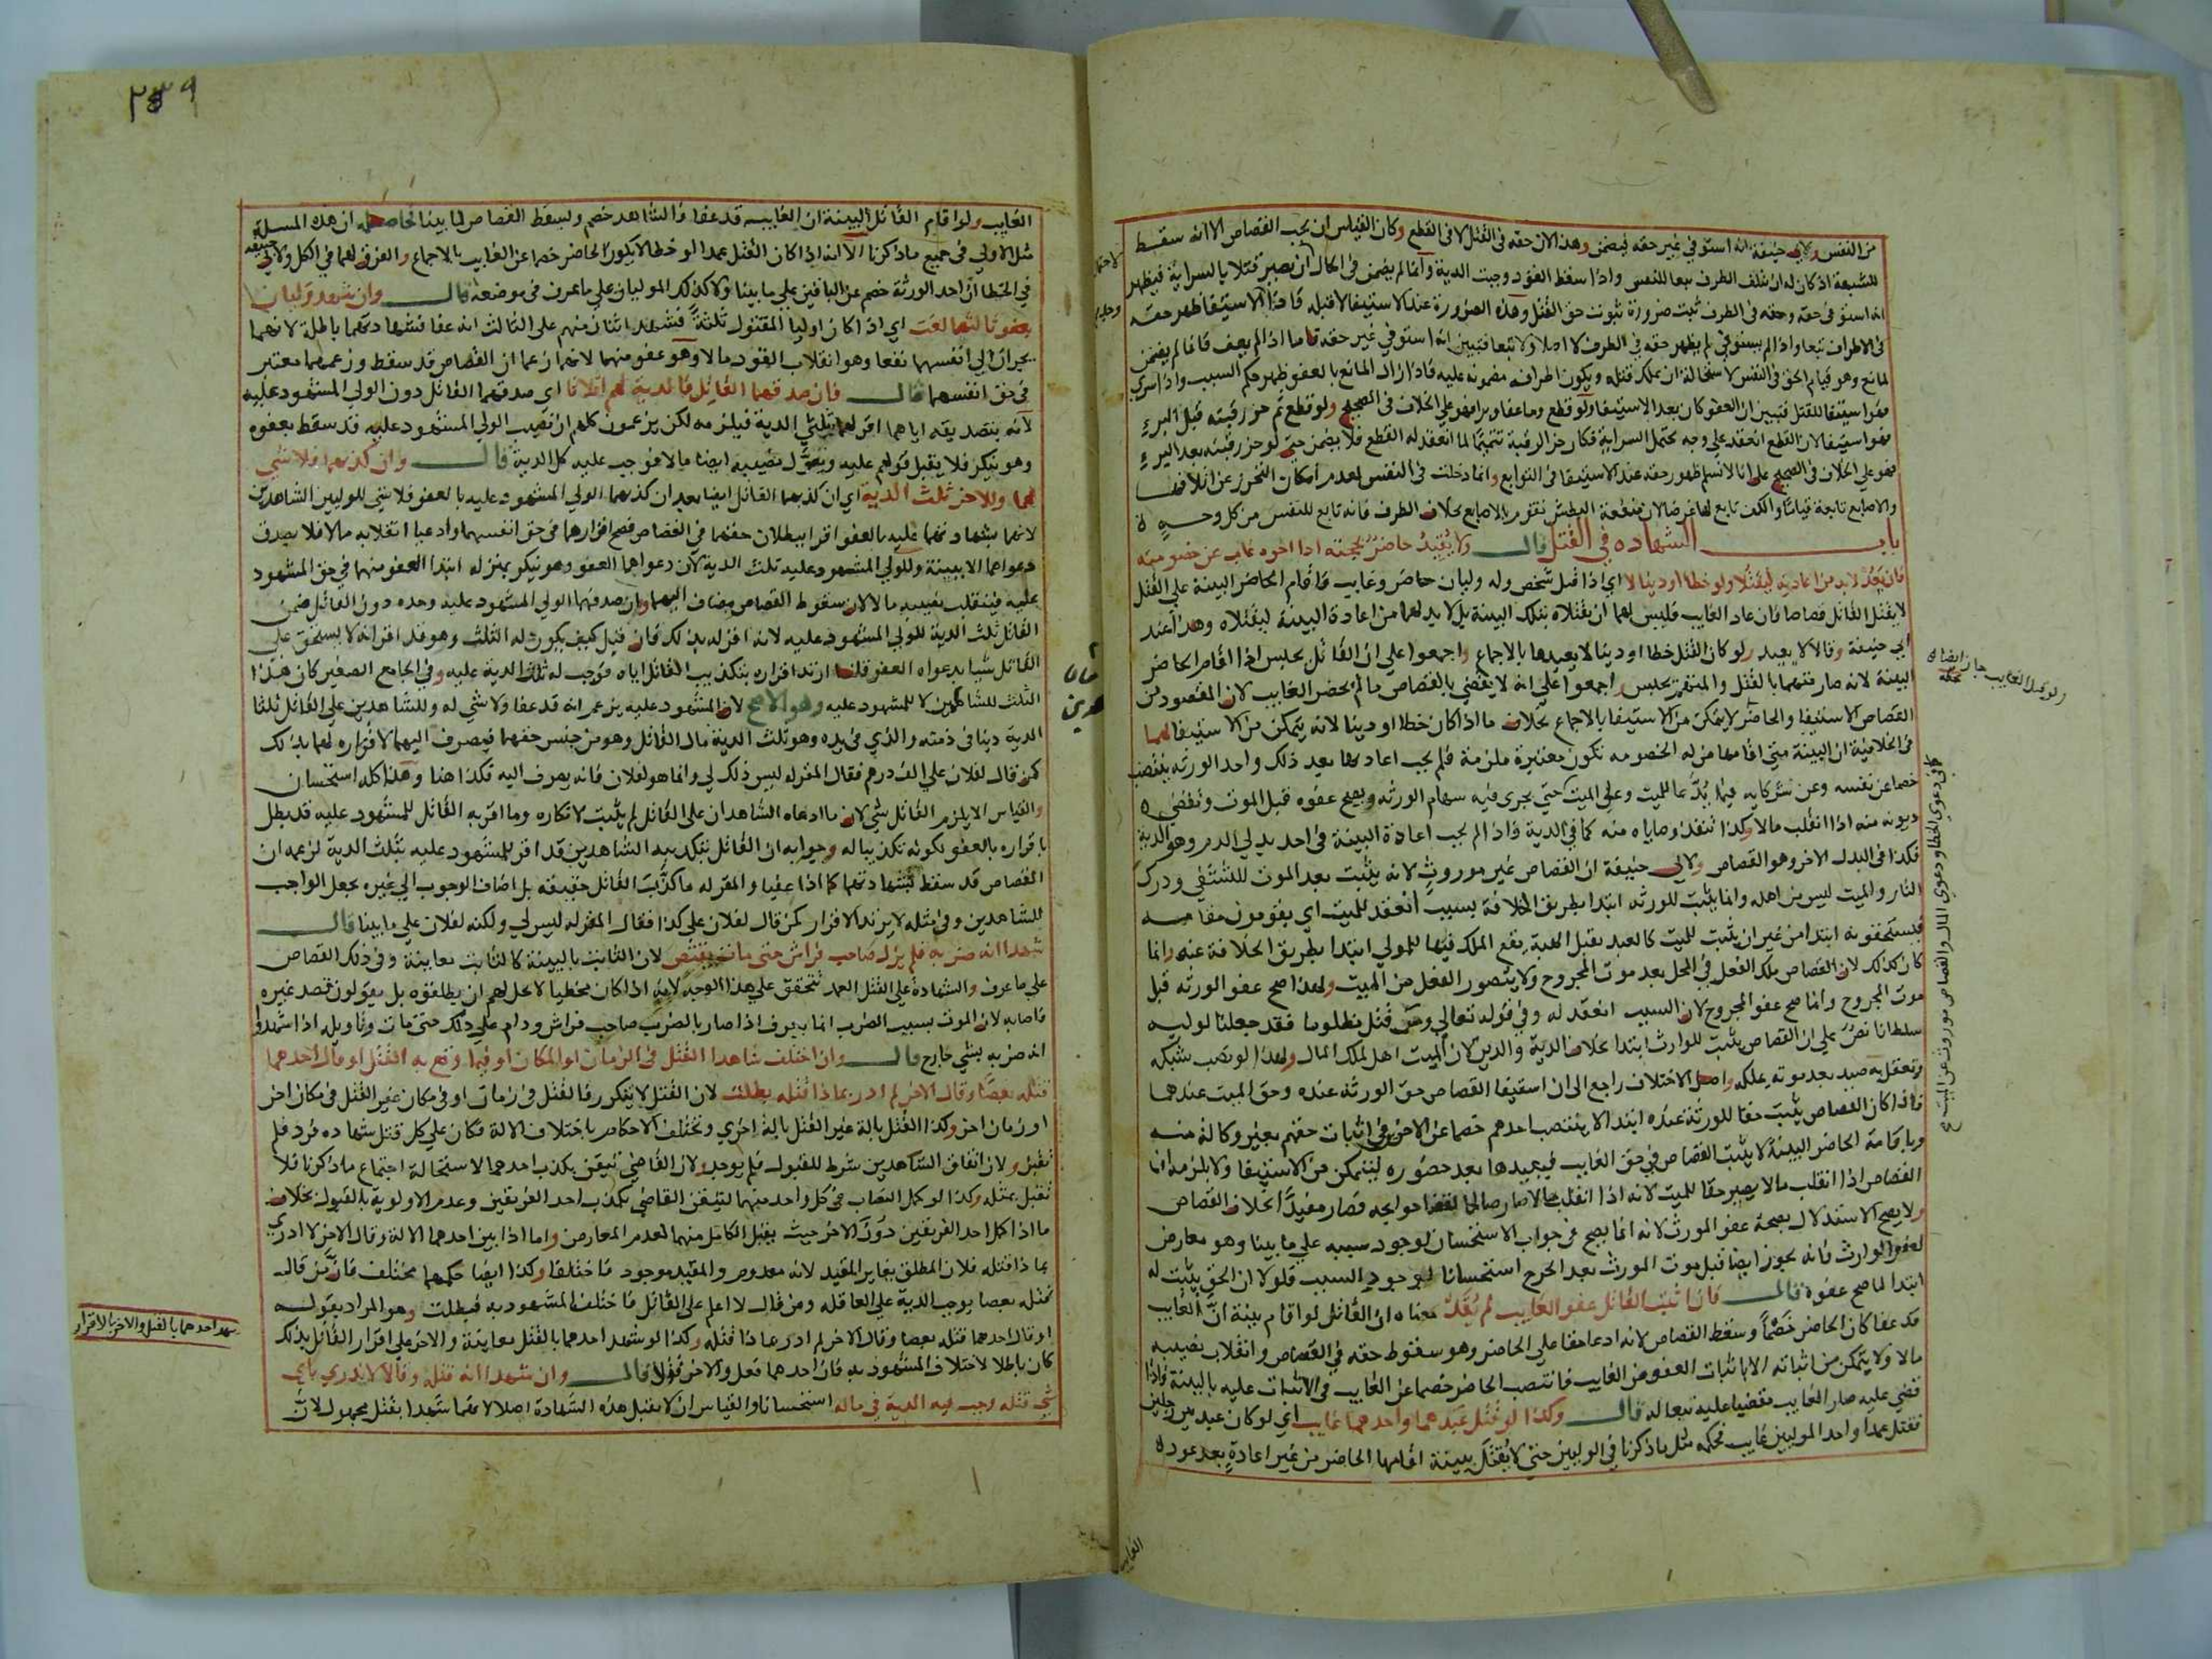 من النفس ولابي حنيفة انه استوفي غير حقه فيضمن وهذا لان حقه في القتل لا في القطع وكان القياس ان يجب القصاص الا انه سقط
للشبهة اذ كان له ان يتلف الطرف تبعا للنفس واذا سقط القود وجبت الدية وانما لم يضمن في الحال لاحتمال ان يصير قتلا بالسراية فيظهر
انه استوفي حقه وحقه في الطرف ثبت ضرورة ثبوت حق القتل وهذه الضرورة عند الاستيفا لا قبله فاذا وجد الاستيفا ظهر حقه
في الاطراف تبعا واذا لم يستوفي لم يظهر حقه في الطرف لا اصلا ولا تبعا فتبين انه استوفي غير حقه فاما اذا لم يعف فانما لم يضمن
لمانع وهو قيام الحق في النفس لاستحالة ان يملك قتله ويكون اطرافه مضمونه عليه فاذا زال المانع بالعفو ظهر حكم السبب واذا سري
فهو استيفا للقتل فتبين ان العفو كان بعد الاستيفا ولو قطع وما عفا وبرا فهو علي الخلاف في الصحيح ولو قطع ثم حز رقبته قبل البرء
فهو استيفا لان القطع انعقد علي وجه يحتمل السراية فكان حز الرقبة تتميما لما انعقد له القطع فلا يضمن حتي لو حز رقبته بعد البرء
فهو علي الخلاف في الصحيح علي انا لا نسلم ظهور حقه عند الاستيفا في التوابع وانما دخلت في النفس لعدم امكان التحرز عن اتلافها
والاصابع تابعة قياسا والكف تابع لها غرضا لان منفعة البطش تقوم بالاصابع بخلاف الطرف فانه تابع للنفس من كل وجه
باب الشهاده في القتل قال ولا يُقيد حاضر بحجته اذا اخوه غاب عن خصومته
فان يَعُد لا بد من اعادته ليقتلا ولو خطا او دينا لا اي اذا قتل شخص وله وليان حاضر وغايب فاقام الحاضر البينة علي القتل
لا يقتل القاتل قصاصا فان عاد الغايب فليس لهما ان يقتلاه بتلك البينة بل لا بد لهما من اعادة البينة ليقتلاه وهذا عند
ابي حنيفة وقالا لا يعيد ولو كان القتل خطا او دينا لا يعيدها بالاجماع واجمعوا علي ان القاتل يحبس اذا اقام الحاضر
البينة لانه صار متهما بالقتل والمتهم يحبس واجمعوا علي انه لا يقضي بالقصاص ما لم يحضر الغايب لان المقصود من
القصاص الاستيفا والحاضر لا يتمكن من الاستيفا بالاجماع بخلاف ما اذا كان خطا او دينا لانه يتمكن من الاستيفا لهما
في الخلافية ان البينة متي اقامها من له الخصومه تكون معتبرة ملزمة فلم يجب اعادتها بعد ذلك واحد الورثه ينتصب
خصما عن نفسه وعن شركايه فيما يُدعا للميت وعلي الميت حتي يجري فيه سهام الورثه ويصح عفوه قبل الموت وتقضي
ديونه منه اذا انقلب مالا وكذا تنفذ وصاياه منه كما في الدية فاذا لم يجب اعادة البينة في احد بدلي الدم وهو الدية
فكذا في البدل الاخر وهو القصاص ولابي حنيفة ان القصاص غير موروث لانه يثبت بعد الموت للتشفي ودرك
الثار والميت ليس من اهله وانما يثبت للورثه ابتدا بطريق الخلافة بسبب انعقد للميت اي يقومون مقامه
فيستحقونه ابتدا من غير ان يثبت للميت كالعبد يقبل الهبة يقع الملك فيها للمولي ابتدا بطريق الخلافة عنه وانما
كان كذلك لان القصاص ملك الفعل في المحل بعد موت المجروح ولا يتصور الفعل من الميت ولهذا صح عفو الورثه قبل
موت المجروح وانما صح عفو المجروح لان السبب انعقد له وفي قوله تعالي ومن قتل مظلوما فقد جعلنا لوليه
سلطانا نص علي ان القصاص يثبت للوارث ابتدا بخلاف الدية والدين لان الميت اهل لملك المال ولهذا لو نصب شبكه
وتعقل به صيد بعد موته يملكه واصل الاختلاف راجع الي ان استيفا القصاص حق الورثه عنده وحق الميت عندهما
فاذا كان القصاص يثبت حقا للورثه عنده ابتدا لا ينتصب احدهم خصما عن الاخرين في اثبات حقهم بغير وكالة منه
وباقامة الحاضر البينة لا يثبت القصاص في حق الغايب فيعيدها بعد حضوره ليتمكن من الاستيفا ولا يلزمه ان
القصاص اذا انقلب مالا يصير حقا للميت لانه اذا انقلب مالا صار صالحا لقضا حوايجه فصار مفيدا بخلاف القصاص
ولا يصح الاستدلال بصحة عفو المورث لانه انما يصح في جواب الاستحسان لوجود سببه علي ما بينا وهو معارض
لعفو الوارث فانه يجوز ايضا قبل موت المورث بعد الجرح استحسانا لوجود السبب فلولا ان الحق يثبت له
ابتدا لما صح عفوه قال فان اثبت القاتل عفو الغايب لم يُعَد معناه ان القاتل لو اقام بينة ان الغايب
قد عفا كان الحاضر خصما وسقط القصاص لانه ادعا حقا علي الحاضر وهو سقوط حقه في القصاص وانقلاب نصيبه
مالا ولا يتمكن من اثباته الا باثبات العفو من الغايب فانتصب الحاضر خصما عن الغايب في الاثبات عليه بالبينة فاذا
قضي عليه صار الغايب مقضيا عليه تبعا له قال وكذا لو قُتل عبدهما واحدهما غايب اي لو كان عبد بين رجلين
فقتل عمدا واحد الموليين غايب فحكمه مثل ما ذكرنا في الوليين حتي لا يُقتل ببينة اقامها الحاضر من غير اعادة بعد عوده
الغايب
ولو قتل الغايب جاز ايضا
في دعوي الخطا ودعوي المال والقصاص موروث عن الميت
٢٣٩
الغايب ولو اقام القاتل البينة ان الغايب قد عفا فالشاهد خصم ويسقط القصاص لما بينا الحاصل ان هذه المسلة
مثل الاولي في جميع ما ذكرنا الا انه اذا كان القتل عمدا او خطا لا يكون الحاضر خصما عن الغايب بالاجماع والفرق لهما في الكل ولابي حنيفة
في الخطا ان احد الورثة خصم عن الباقين علي ما بينا ولا كذلك الموليان علي ما عرف في موضعه قال وان شهد وليان
بعفو ثالثهما لغت اي اذا كان اوليا المقتول ثلثة فشهد اثنان منهم علي الثالث انه عفا فشهادتهما باطلة لانهما
يجران الي انفسهما نفعا وهو انقلاب القود مالا وهو عفو منهما لانهما زعما ان القصاص قد سقط وزعمهما معتبر
في حق انفسهما قال فان صدقهما القاتل فالدية لهم اثلاثا اي صدقهما القاتل دون الولي المشهود عليه
لانه بتصديقه اياهما اقر لهما بثلثي الدية فيلزمه لكن يزعمون كلهم ان نصيب الولي المشهود عليه قد سقط بعفوه
وهو ينكر فلا يقبل قولهم عليه ويتحول نصيبه ايضا مالا فوجب عليه كل الدية قال وان كذبهما فلا شي
لهما وللاخر ثلث الدية اي ان كذبهما القاتل ايضا بعد ان كذبهما الولي المشهود عليه بالعفو فلا شي للوليين الشاهدين
لانهما بشهادتهما عليه بالعفو اقرا ببطلان حقهما في القصاص فصح اقرارهما في حق انفسهما وادعيا انقلابه مالا فلا يصدق
دعواهما الا ببينة وللولي المشهود عليه ثلث الدية لان دعواهما العفو وهو ينكر بمنزلة ابتدا العفو منهما في حق المشهود
عليه فينقلب نصيبه مالا لان سقوط القصاص مضاف اليهما وان صدقهما الولي المشهود عليه وحده دون القاتل ضمن
القاتل ثلث الدية للولي المشهود عليه لانه اقر له بذلك فان قيل كيف يكون له الثلث وهو قد اقر انه لا يستحق علي
القاتل شيا بدعواه العفو قلنا ارتد اقراره بتكذيب القاتل اياه فوجب له ثلث الدية عليه وفي الجامع الصغير كان هذا
الثلث للشاهدين لا للمشهود عليه وهو الاصح لان المشهود عليه يزعم انه قد عفا ولا شي له وللشاهدين علي القاتل ثلثا
الدية دينا في ذمته والذي في يده وهو ثلث الدية مال القاتل وهو من جنس حقهما فيصرف اليهما لاقراره لهما بذلك
كمن قال لفلان علي الف درهم فقال المقر له ليس ذلك لي وانما هو لفلان فانه يصرف اليه فكذا هنا وهذا كله استحسان
والقياس الا يلزم القاتل شي لان ما ادعاه الشاهدان علي القاتل لم يثبت لانكاره وما اقر به القاتل للمشهود عليه قد بطل
باقراره بالعفو لكونه تكذيبا له وجوابه ان القاتل بتكذيبه الشاهدين قد اقر للمشهود عليه بثلث الدية لزعمه ان
القصاص قد سقط بشهادتهما كما اذا عفيا والمقر له ما كذب القاتل حقيقة بل اضاف الوجوب الي غيره بجعل الواجب
للشاهدين وفي مثله لا يرتد الاقرار كمن قال لفلان علي كذا فقال المقر له ليس لي ولكنه لفلان علي ما بينا قال
شهدا انه ضربه فلم يزل صاحب فراش حتي مات يقتص لان الثابت بالبينة كالثابت معاينة وفي ذلك القصاص
علي ما عرف والشهادة علي القتل العمد تتحقق علي هذا الوجه لانه اذا كان مخطيا لا يحل لهم ان يطلقوه بل يقولون قصد غيره
فاصابه لان الموت بسبب الضرب انما يعرف اذا صار بالضرب صاحب فراش ودام علي ذلك حتي مات وتاويله اذا شهدوا
انه ضربه بشي جارح قال وان اختلف شاهدا القتل في الزمان او المكان او فيما وقع به القتل او قال احدهما
قتله بعصا وقال الاخر لم ادر بماذا قتله بطلت لان القتل لا يتكرر فالقتل في زمان او في مكان غير القتل في مكان اخر
او زمان اخر وكذا القتل بالة غير القتل بالة اخري وتختلف الاحكام باختلاف الالة فكان علي كل قتل شهاده فرد فلم
تقبل ولان اتفاق الشاهدين شرط للقبول فلم يوجد ولان القاضي تيقن بكذب احدهما لاستحالة اجتماع ما ذكرنا فلا
تقبل بمثله وكذا لو كمل النصاب في كل واحد منهما لتيقن القاضي بكذب احد الفريقين وعدم الاولوية بالقبول بخلاف
ما اذا كمل احد الفريقين دون الاخر حيث يقبل الكامل منهما لعدم المعارض واما اذا بين احدهما الالة وقال الاخر لا ادري
بماذا قتله فلان المطلق يغاير المقيد لانه معدوم والمقيد موجود فاختلفا وكذا ايضا حكمهما مختلف فان من قال
قتله بعصا يوجب الدية علي العاقله ومن قال لا اعلم علي القاتل فاختلف المشهود به فبطلت وهو المراد بقوله
او قال احدهما قتله بعصا وقال الاخر لم ادر بماذا قتله وكذا لو شهد احدهما بالقتل معاينة والاخر علي اقرار القاتل بذلك
كان باطلا لاختلاف المشهود به فان احدهما فعل والاخر قول قال وان شهدا انه قتله وقالا لا ندري باي
شي قتله وجب فيه الدية في ماله استحسانا والقياس ان لا تقبل هذه الشهادة اصلا لانهما شهدا بقتل مجهول لان
شهد احدهما بالقتل والاخر بالاقرار